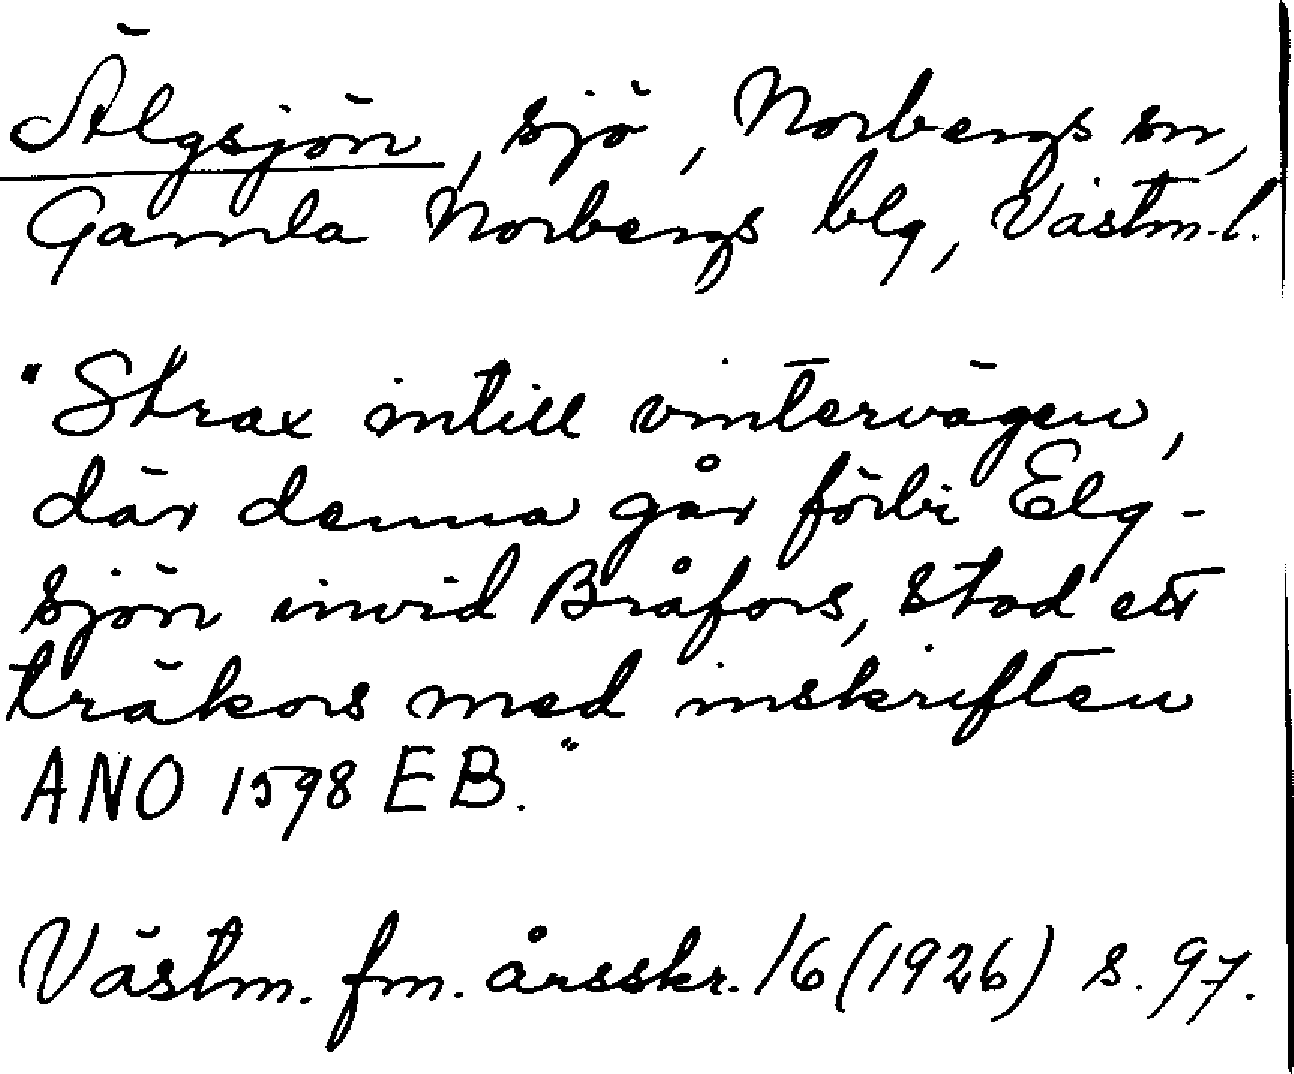 Älgsjön, sjö, Norbergs sn,
Gamla Norbergs blg, Västm. l.
"Strax intill vintervägen,
där denna går förbi Elg-
sjön invid Bråfors, stod ett
träkors med inskriften
ANO 1598 EB."
Västm. fm. årsskr. 16 (1926) s. 97.